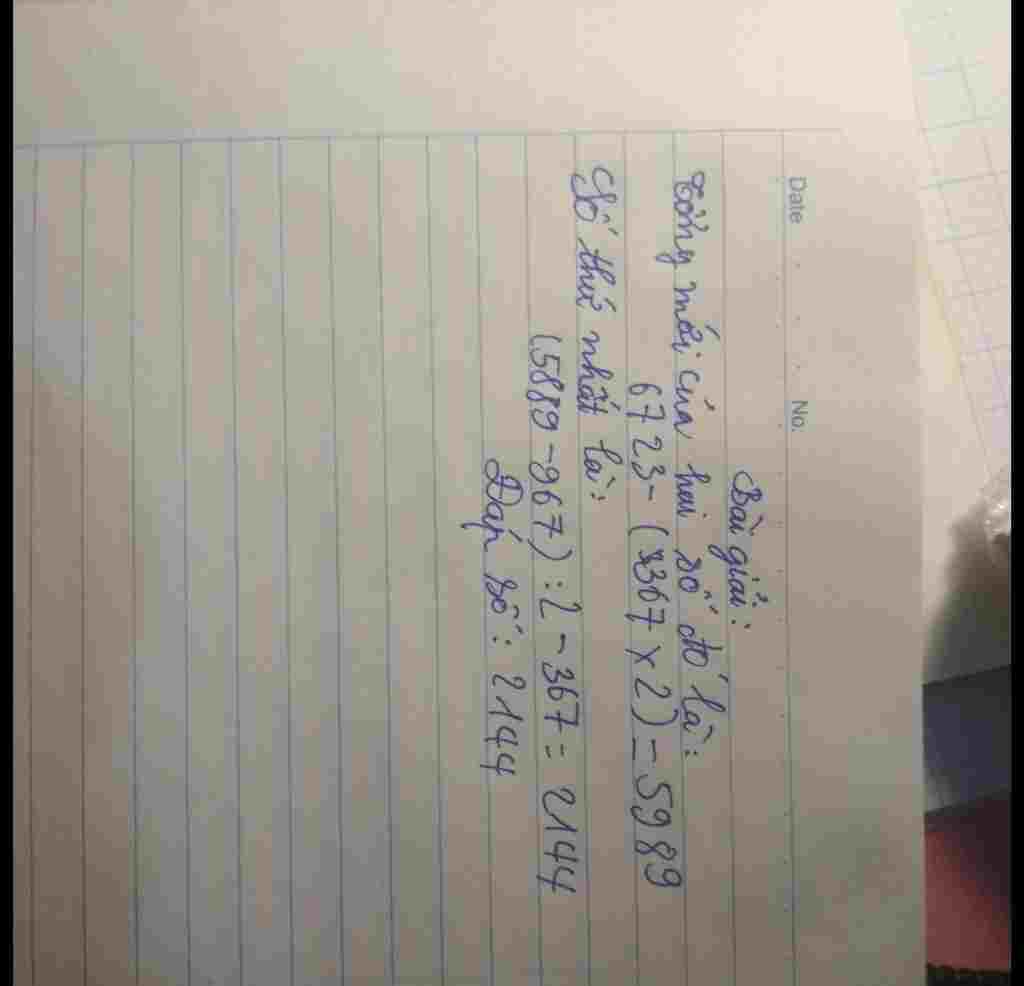 Date . . . No.
Bài giải:
Tổng mới của hai số đó là:
6723 - (367 x 2) = 5989
Số thứ nhất là:
(5889 - 967) : 2 - 367 = 2144
Đáp số : 2144